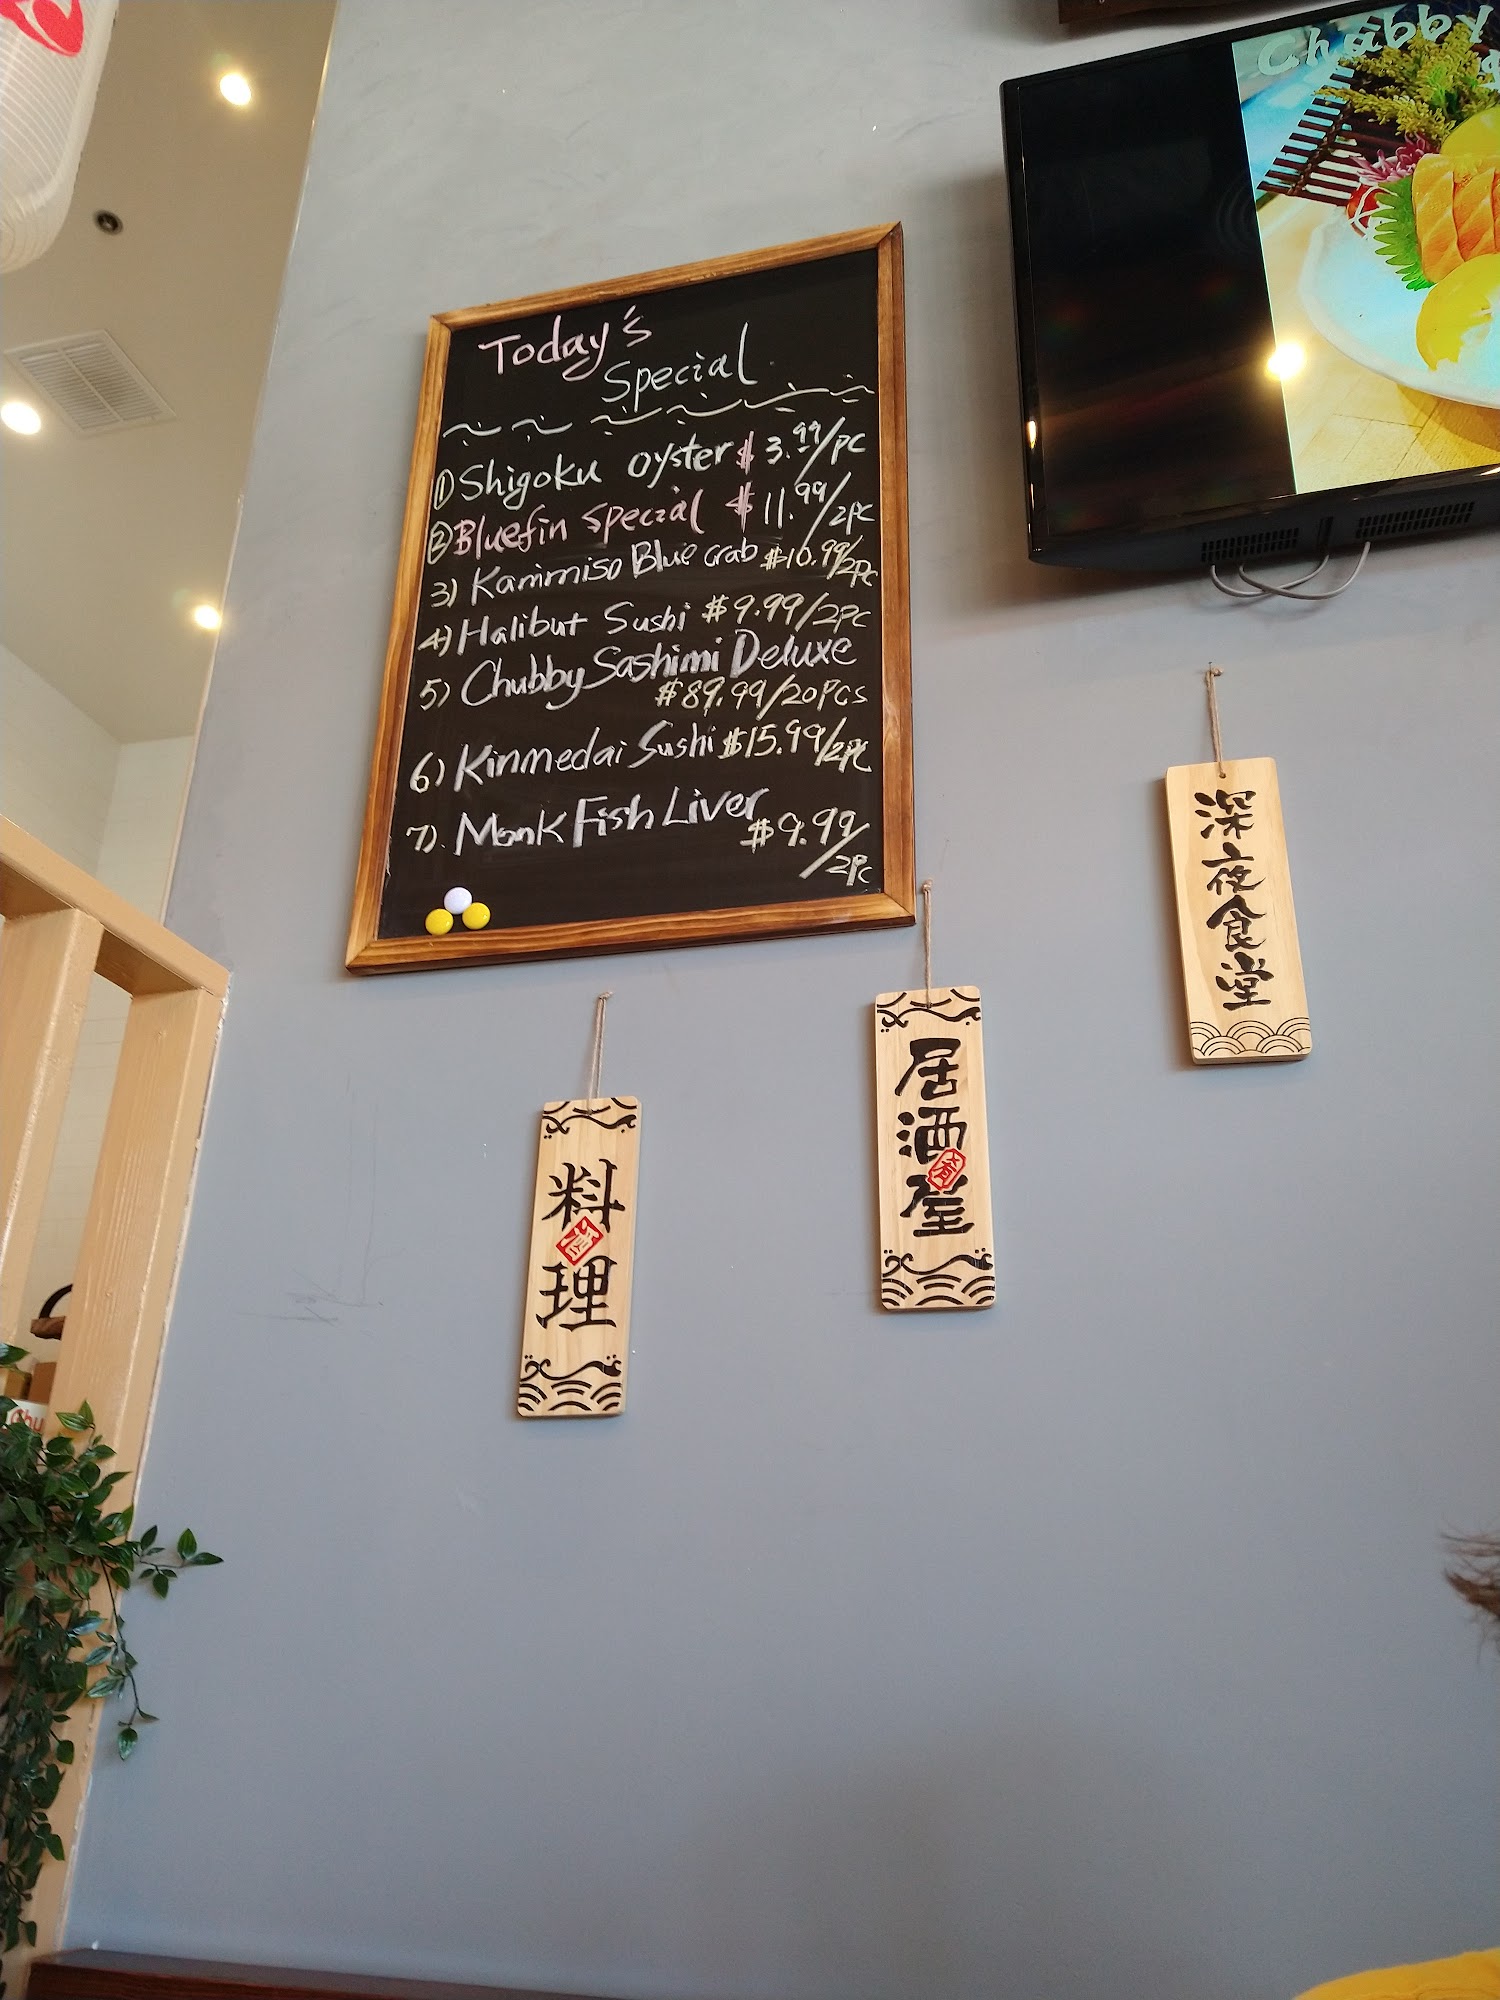 Chubby
Today's
Special
① Shigoku oyster $3.99/PC
② Bluefin special $11.99/2PC
3) Kanimiso Blue crab $10.99/2PC
4) Halibut Sushi $9.99/2PC
5) Chubby Sashimi Deluxe
$89.99/20PCS
6) Kinmedai Sushi $15.99/2PC
7). Monk Fish Liver
$9.99
/2PC
深夜食堂
居酒屋
料理
Chu